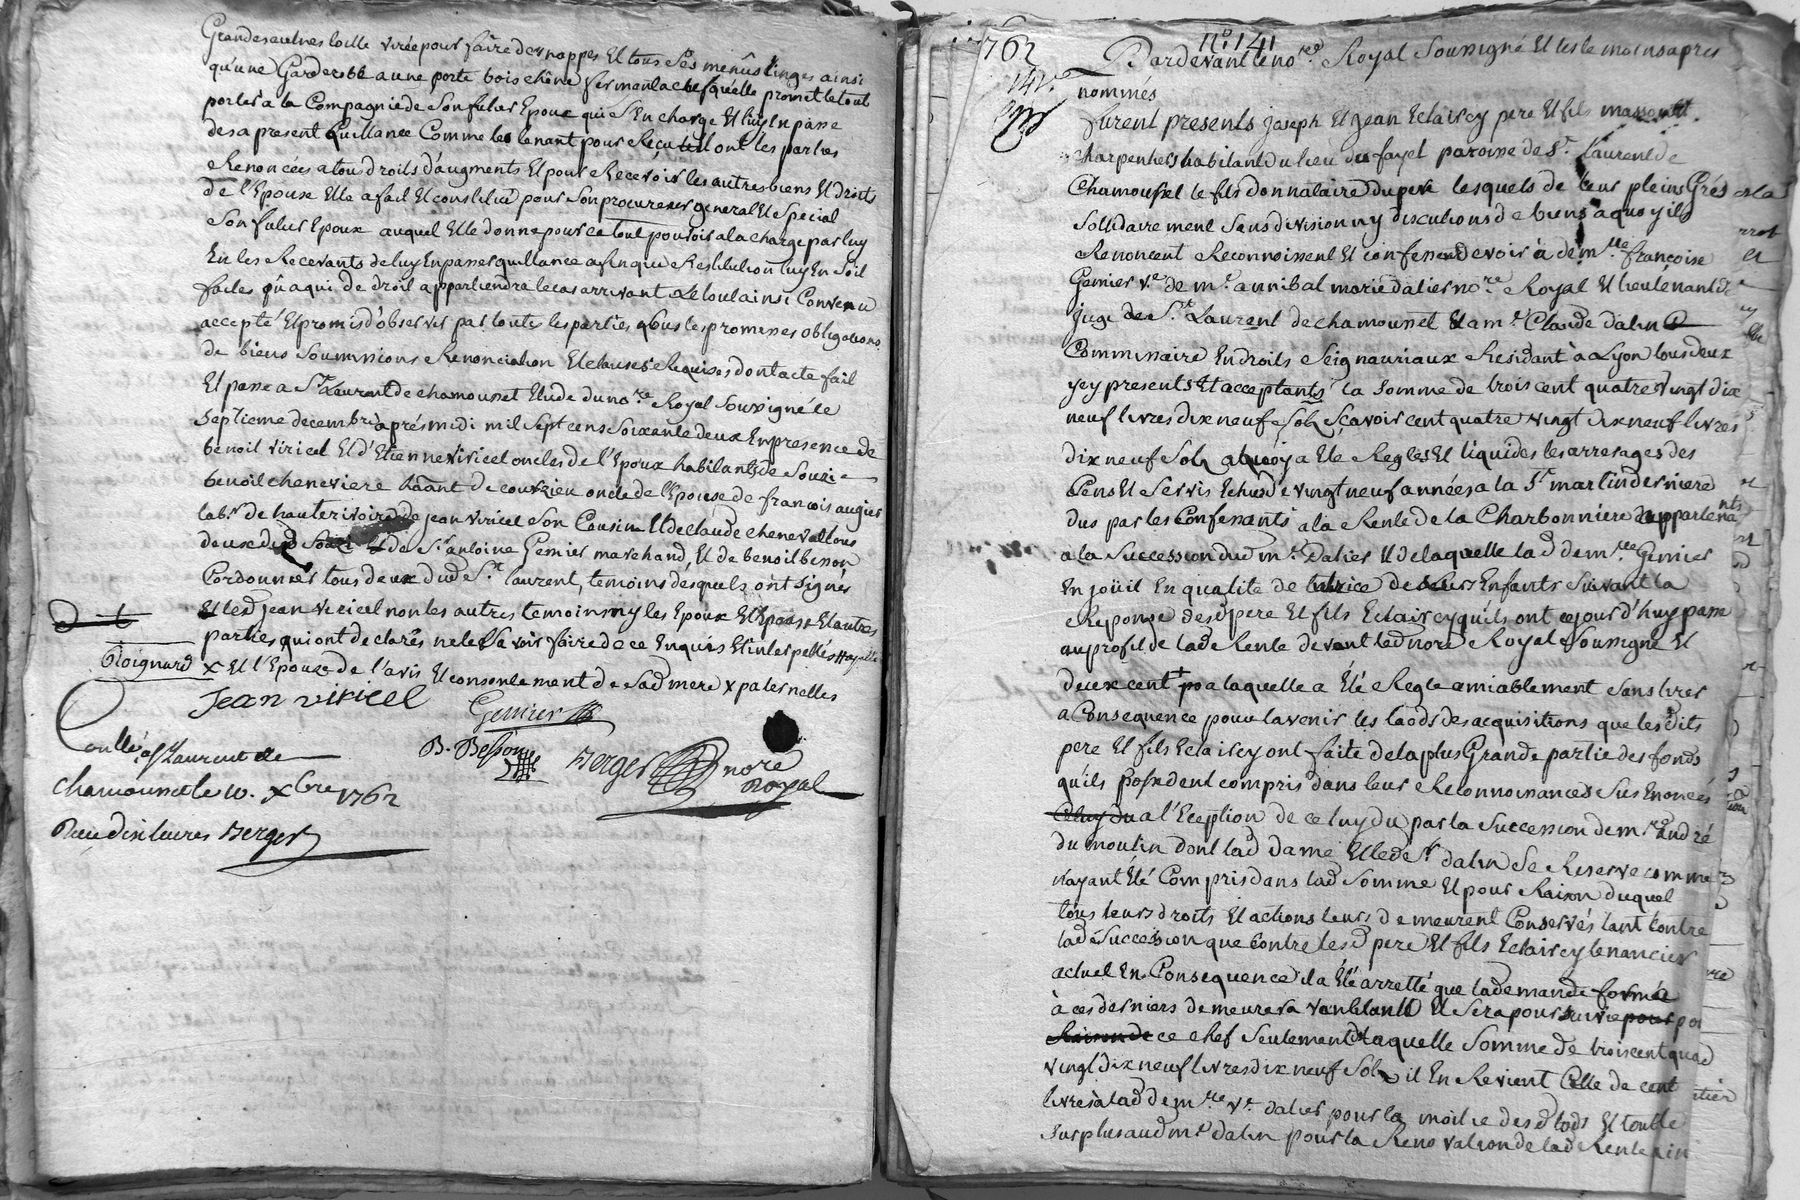 Grandes aulnes toille virée pour faire des nappes Et tous ses menûs linges ainsi
qu'une Garderobe a une porte bois chêne fermant a clef qu'elle promet le tout
porter a la Compagnie de Son futur Epoux qui S'En charge Et luy En passe
des a present Quittance Comme les tenant pour Reçu ont les parties
Renoncées a tous droits d'augments Et pour Recevoir les autres biens Et droits
de l'Epouse Elle a fait Et constitué pour Son procureur general Et Special
Son futur Epoux auquel Elle donne pour ce tout pouvoir a la charge par luy
En les Recevants de luy En passer quittance afin que Restitution luy En Soit
faites qu'a qui de droit appartiendra le cas arrivant Le tout ainsi Convenu
accepté Et promis d'observer par toutes les parties sous les promesses obligations
de biens Soumissions Renonciation Et clauses Requises dont acte fait
Et passé a St. Laurent de chamousset Etude du no.re Royal Soussigné le
Septieme decembre après midi mil Sept cens Soixante deux En presence de
benoit viricel Et d'Etienne viricel oncles de l'Epoux habilants de Souzi
benoit cheneviere hâant de courzieu oncle de l'Epouse de francois augier
lab.r de hauterivoire de jean viricel Son Cousin Et de Claude chenevat tous
deux dud Souzi Et de Sr. antoine Genier marchand, Et de benoit besson
Cordonnier tous deux dud St. laurent, temoins desquels ont signés
Et led jean viricel non les autres temoins ny les Epoux Et Epouse Et autres
parties qui ont declarés ne le Savoir faire de ce Enquis Et interpellés
x Et l'Epouse de l'avis Et consentement de Sad mere x paternelles
Coignard
jean viricel
Genier
B. Besson
Berger nore
Royal
Conllé a St Laurent de
chamousset le 10. Xbre 1762
Reçu dix livres Berger
1762
N.o 141
Pardevant le no.re Royal Soussigné Et les temoins apres
nommés
furent presents joseph Et jean Eclaircy pere Et fils
charpentiers habilant du lieu du fayet paroisse de St. Laurent de
Chamousset le fils donnataire du pere lesquels de leur pleins Grés
Sollidairement Sans division ny discutions de biens a quoy ils
Renoncent Reconnoissent Et confessent devoir à dem.lle françoise
Genier v.e de m.e annibal marie dalier no.re Royal Et lieutenant de
juge de St. Laurent de chamousset Et a m.e Claude dalin
Commissaire En droits Seigneuriaux Residant à Lyon tous deux
ycy presents Et acceptants la somme de trois cent quatre vingt dix
neuf livres dix neuf Sols Sçavoir cent quatre vingt dix neuf livres
dix neuf Sols a quoy a Eté Reglés Et liquidés les arrerages des
Cens Et Servis Echus de vingt neuf années a la St martin derniere
dus par les Confessants a la Rente de la Charbonniere appartenants
a la Succession dud m.e Dalier Et de laquelle lad dem.lle Genier
En joüit En qualité de tutrice de leurs Enfants Suivant la
Reponse desd pere Et fils Eclaircy qu'ils ont ce jour d'huy passé
au profit de lad Rente devant led nore Royal Soussigné Et
deux cent a laquelle a Eté Reglé amiablement Sans tirer
a Consequence pour l'avenir les laods des acquisitions que lesdits
pere Et fils Eclaircy ont faite de la plus Grande partie des fonds
qu'ils possedent compris dans leur Reconnoissances Sus Enoncés
celuy du a l'Eception de celuy du par la Succession de m.re andré
du moulin dont lad dame Et led Sr. dalin Se Reserve comme
n'ayant Eté Compris dans lad Somme Et pour Raison duquel
tous leurs droits Et actions leurs demeurent Conservés tant contre
lad Succession que contre lesd pere Et fils Eclaircy tenancier
actuel En Consequence il a Eté arretté que la demande formée
à ces derniers demeurera Et Sera poursuivie pour
Raison de ce chef Seulement de laquelle Somme de trois cent quatre
vingt dix neuf livres dix neuf Sols il En Revient Celle de cent
livres à lad dem.lle v.e dalier pour la moitié desd lods Et tout le
Surplus aud m.e dalin pour la Renovation de lad Rente